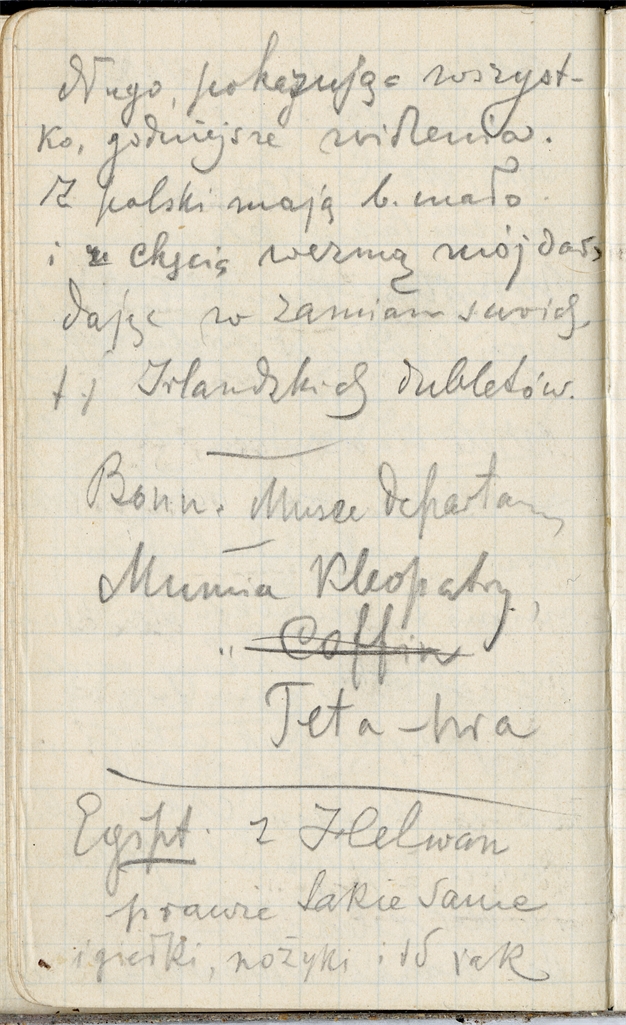 długo, pokazując wszyst-
ko, godniejsze widzenia.
Z polski mają b. mało
i z chęcią wezmą mój dar,
dając w zamian swoich
t.j Irlandzkich dubletów.
Bonn. Musee departam
Mumia Kleopatry,
" Coffin
Teta-hra
Egipt. z Helwan
prawie takie same
igiełki, nożyki i td jak